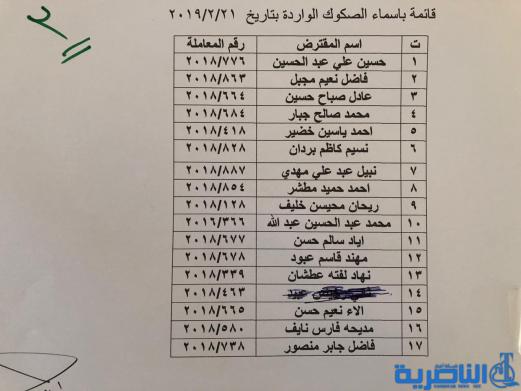 قائمة باسماء الصكوك الواردة بتاريخ ٢٠١٩/٢/٢١
ت اسم المقترض رقم المعاملة
١ حسين علي عبد الحسين ٢٠١٨/٧٧٦
٢ فاضل نعيم مجبل ٢٠١٨/٨٦٣
٣ عادل صباح حسين ٢٠١٨/٦٦٤
٤ محمد صالح جبار ٢٠١٨/٦٨٤
٥ احمد ياسين خضير ٢٠١٨/٤١٨
٦ نسيم كاظم بردان ٢٠١٨/٨٢٨
٧ نبيل عبد علي مهدي ٢٠١٨/٨٨٧
٨ احمد حميد مطشر ٢٠١٨/٨٥٤
٩ ريحان محيسن خليف ٢٠١٨/١٢٨
١٠ محمد عبد الحسين عبد الله ٢٠١٦/٣٦٦
١١ اياد سالم حسن ٢٠١٨/٦٧٧
١٢ مهند قاسم عبود ٢٠١٨/٧٦٢
١٣ نهاد لفته عطشان ٢٠١٨/٣٣٩
١٤ ٢٠١٨/٤٦٣
١٥ الاء نعيم حسن ٢٠١٨/٦٦٥
١٦ مديحه فارس نايف ٢٠١٨/٥٨٠
١٧ فاضل جابر منصور ٢٠١٨/٧٣٨
الناصرية